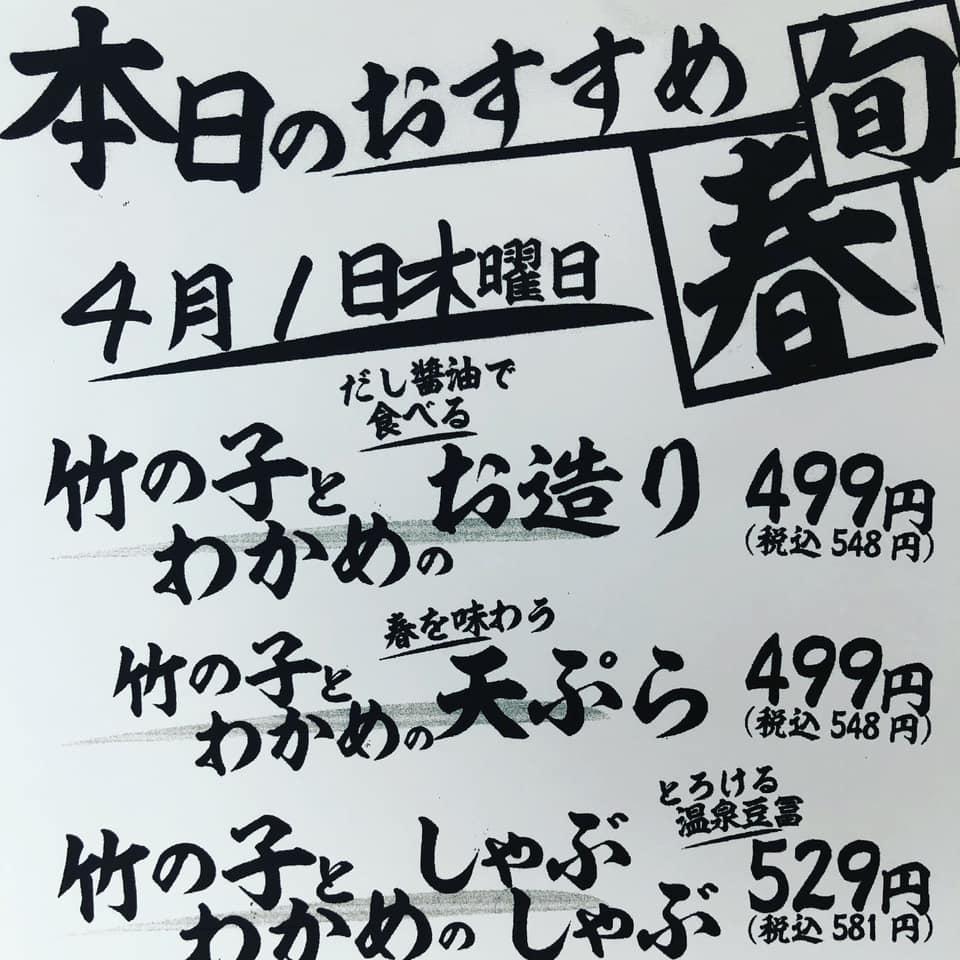 本日のおすすめ
旬
春
4月1日木曜日
だし醤油で
食べる
竹の子と
わかめの
お造り
499円
(税込548円)
春を味わう
竹の子と
わかめの
天ぷら
499円
(税込548円)
とろける
温泉豆冨
竹の子と
わかめの
しゃぶ
しゃぶ
529円
(税込581円)